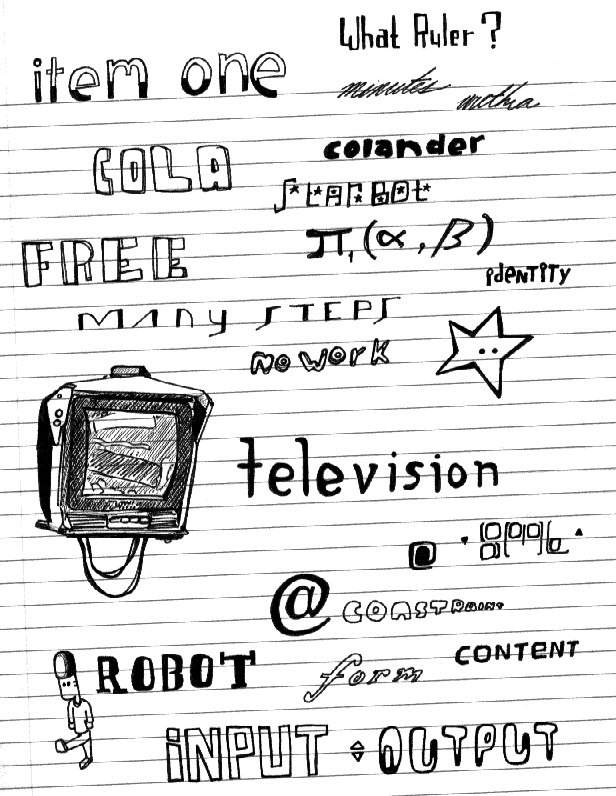 What Ruler?
item one
minutes
COLA
colander
FREE
π₁(α,β)
identity
MANY STEPS
no work
television
@ CONSTRAINT
ROBOT
form
CONTENT
iNPUT OUTPUT